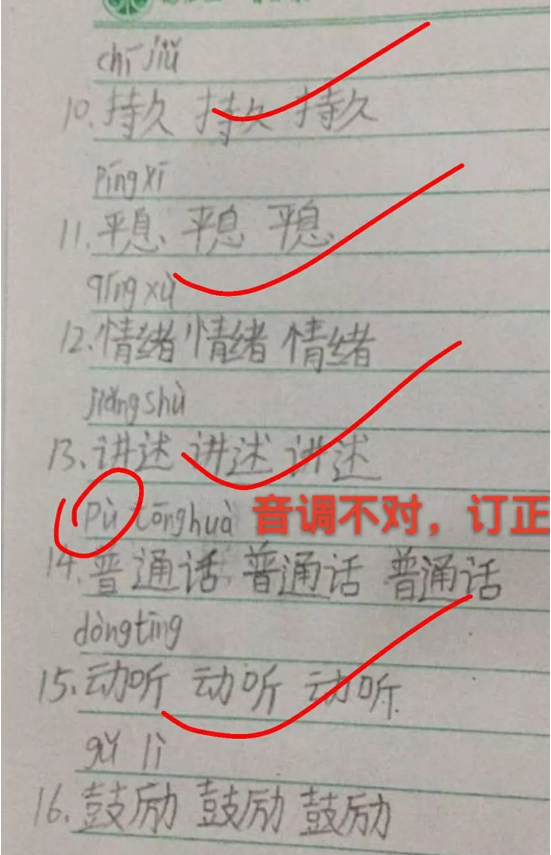 chí jiǔ
10. 持久 持久 持久
píng xī
11. 平息 平息 平息
qíng xù
12. 情绪 情绪 情绪
jiǎng shù
13. 讲述 讲述 讲述
pù tōng huà 音调不对，订正
14. 普通话 普通话 普通话
dòng tīng
15. 动听 动听 动听
gǔ lì
16. 鼓励 鼓励 鼓励